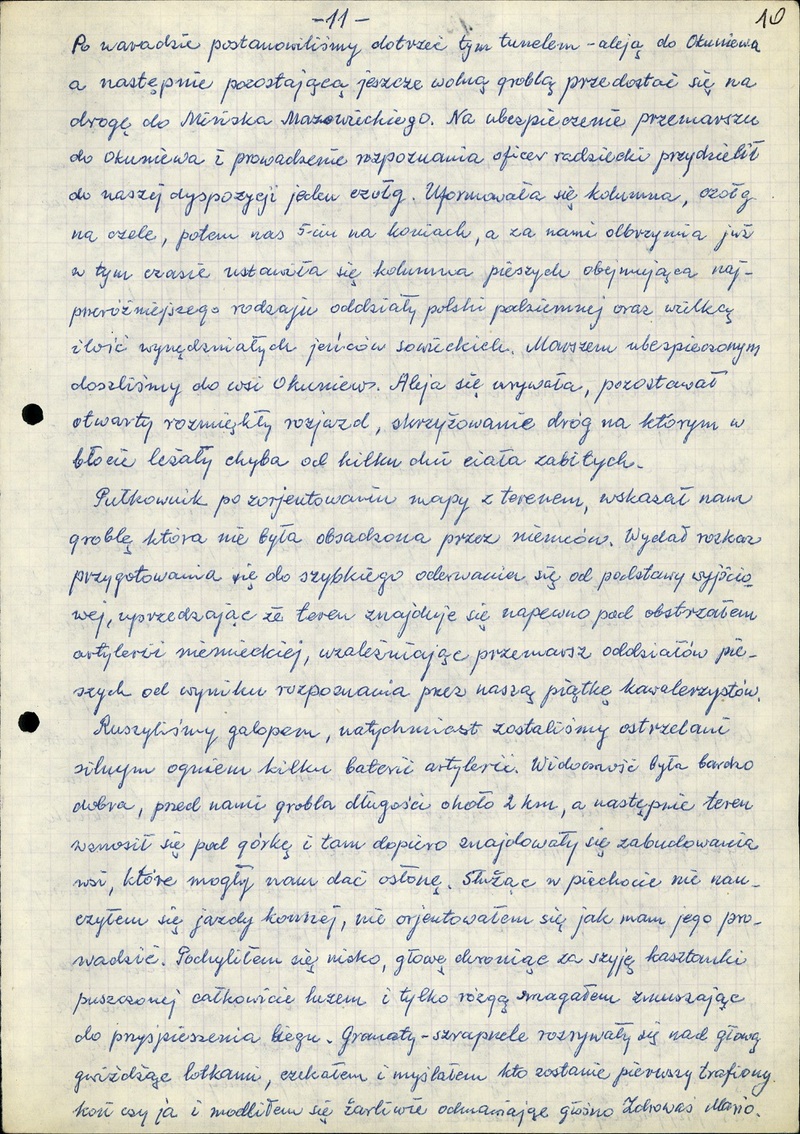 -11-
10
Po naradzie postanowiliśmy dotrzeć tym tunelem - aleją do Okuniewa
a następnie pozostającą jeszcze wolną groblą przedostać się na
drogę do Mińska Mazowieckiego. Na ubezpieczenie przemarszu
do Okuniewa i prowadzenie rozpoznania oficer radziecki przydzielił
do naszej dyspozycji jeden czołg. Uformowała się kolumna, czołg
na czele, potem nas 5-ciu na koniach, a za nami olbrzymia już
w tym czasie ustawiła się kolumna pieszych obejmująca naj-
przeróżniejszego rodzaju oddziały polski podziemnej oraz wielką
ilość wynędzniałych jeńców sowieckich. Marszem ubezpieczonym
doszliśmy do wsi Okuniew. Aleja się urywała, pozostawał
otwarty rozmiękły rozjazd, skrzyżowanie dróg na którym w
błocie leżały chyba od kilku dni ciała zabitych.
Pułkownik po zorjentowaniu mapy z terenem, wskazał nam
groblę która nie była obsadzona przez niemców. Wydał rozkaz
przygotowania się do szybkiego oderwania się od podstawy wyjścio-
wej, uprzedzając że teren znajduje się napewno pod obstrzałem
artylerii niemieckiej, uzależniając przemarsz oddziałów pie-
szych od wyniku rozpoznania przez naszą piątkę kawalerzystów.
Ruszyliśmy galopem, natychmiast zostaliśmy ostrzelani
silnym ogniem kilku baterii artylerii. Widoczność była bardzo
dobra, przed nami grobla długości około 2 km, a następnie teren
wznosił się pod górkę i tam dopiero znajdowały się zabudowania
wsi, które mogły nam dać osłonę. Służąc w piechocie nie nau-
czyłem się jazdy konnej, nie orjentowałem się jak mam jego pro-
wadzić. Pochyliłem się nisko, głowę chroniąc za szyję kasztanki
puszczonej całkowicie luzem i tylko rózgą smagałem zmuszając
do przyśpieszenia biegu. Granaty-szrapnele rozrywały się nad głową
gwiżdżąc lotkami, czekałem i myślałem kto zostanie pierwszy trafiony
koń czy ja i modliłem się żarliwie odmawiając głośno Zdrowaś Mario.